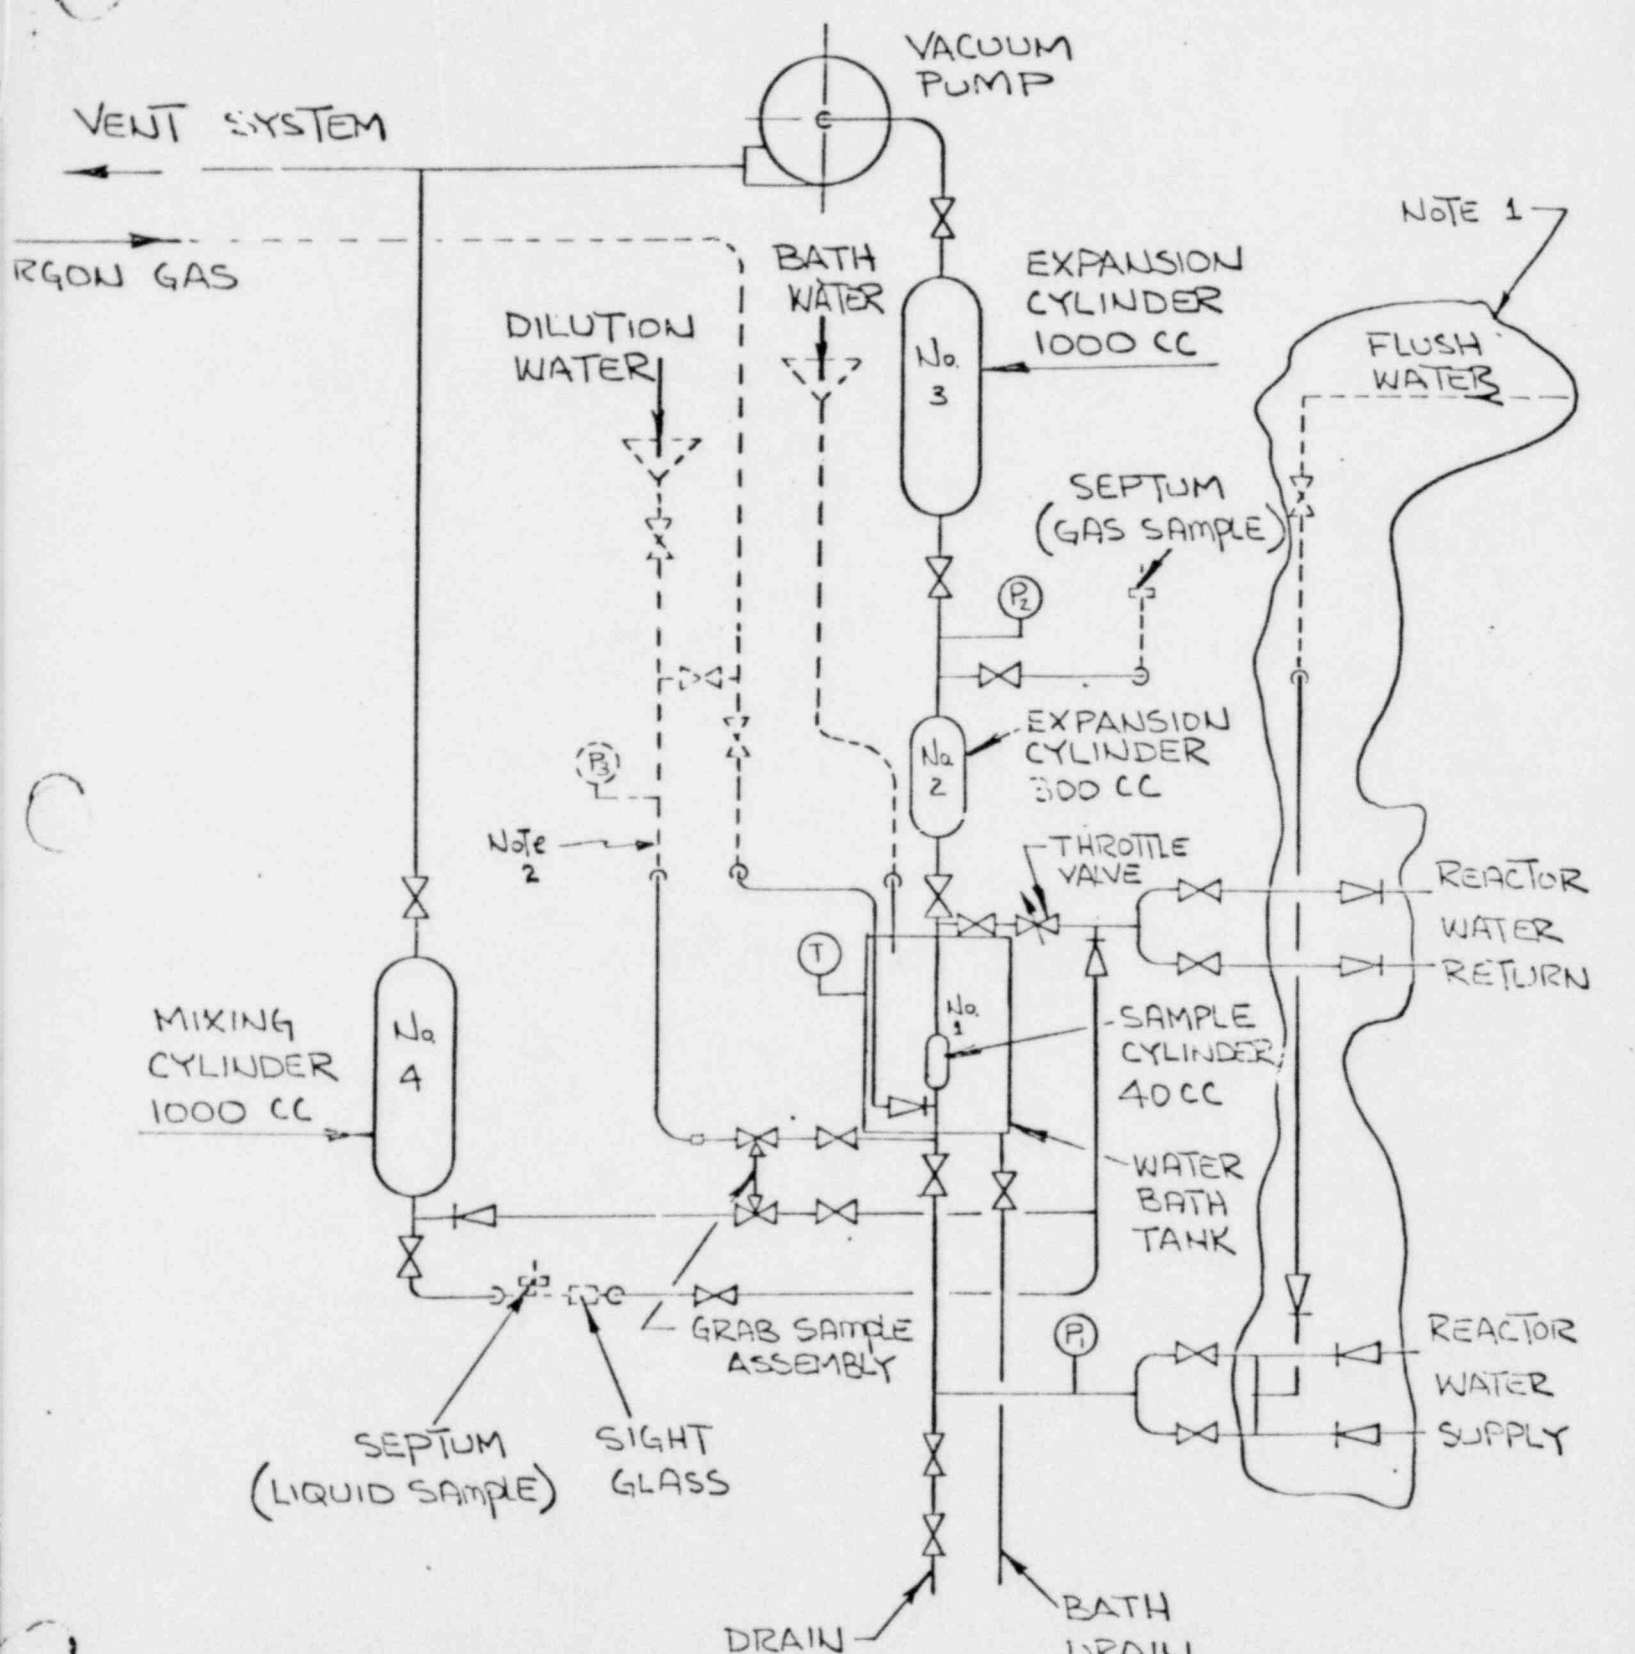 VACUUM
PUMP
VENT SYSTEM
RGON GAS
NOTE 1
BATH
WATER
EXPANSION
CYLINDER
1000 CC
No.
3
DILUTION
WATER
FLUSH
WATER
SEPTUM
(GAS SAMPLE)
P2
EXPANSION
CYLINDER
300 CC
No
2
P3
NOTE
2
THROTTLE
VALVE
REACTOR
WATER
RETURN
T
No.
1
SAMPLE
CYLINDER
40 CC
MIXING
CYLINDER
1000 CC
No
4
WATER
BATH
TANK
GRAB SAMPLE
ASSEMBLY
P1
REACTOR
WATER
SUPPLY
SEPTUM
(LIQUID SAMPLE)
SIGHT
GLASS
DRAIN
BATH
DRAIN